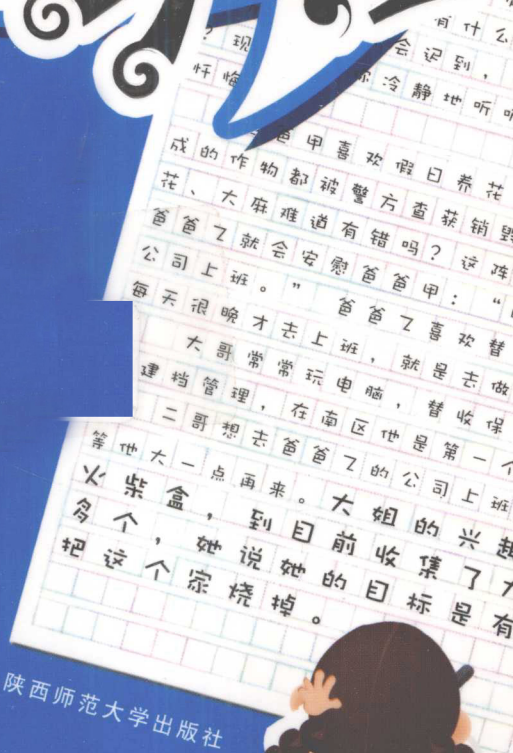 有什么
？现 会迟到，
忏悔 你冷静地听
爸甲喜欢假日养花
成的作物都被警方查获销毁
花、大麻难道有错吗？这阵
爸爸乙就会安慰爸爸甲：“
公司上班。” 爸爸乙喜欢替
每天很晚才去上班，就是去做
大哥常常玩电脑，替收保
建档管理，在南区他是第一个
二哥想去爸爸乙的公司上班
等他大一点再来。大姐的兴趣
火柴盒，到目前收集了
多个，她说她的目标是有
把这个家烧掉。
陕西师范大学出版社